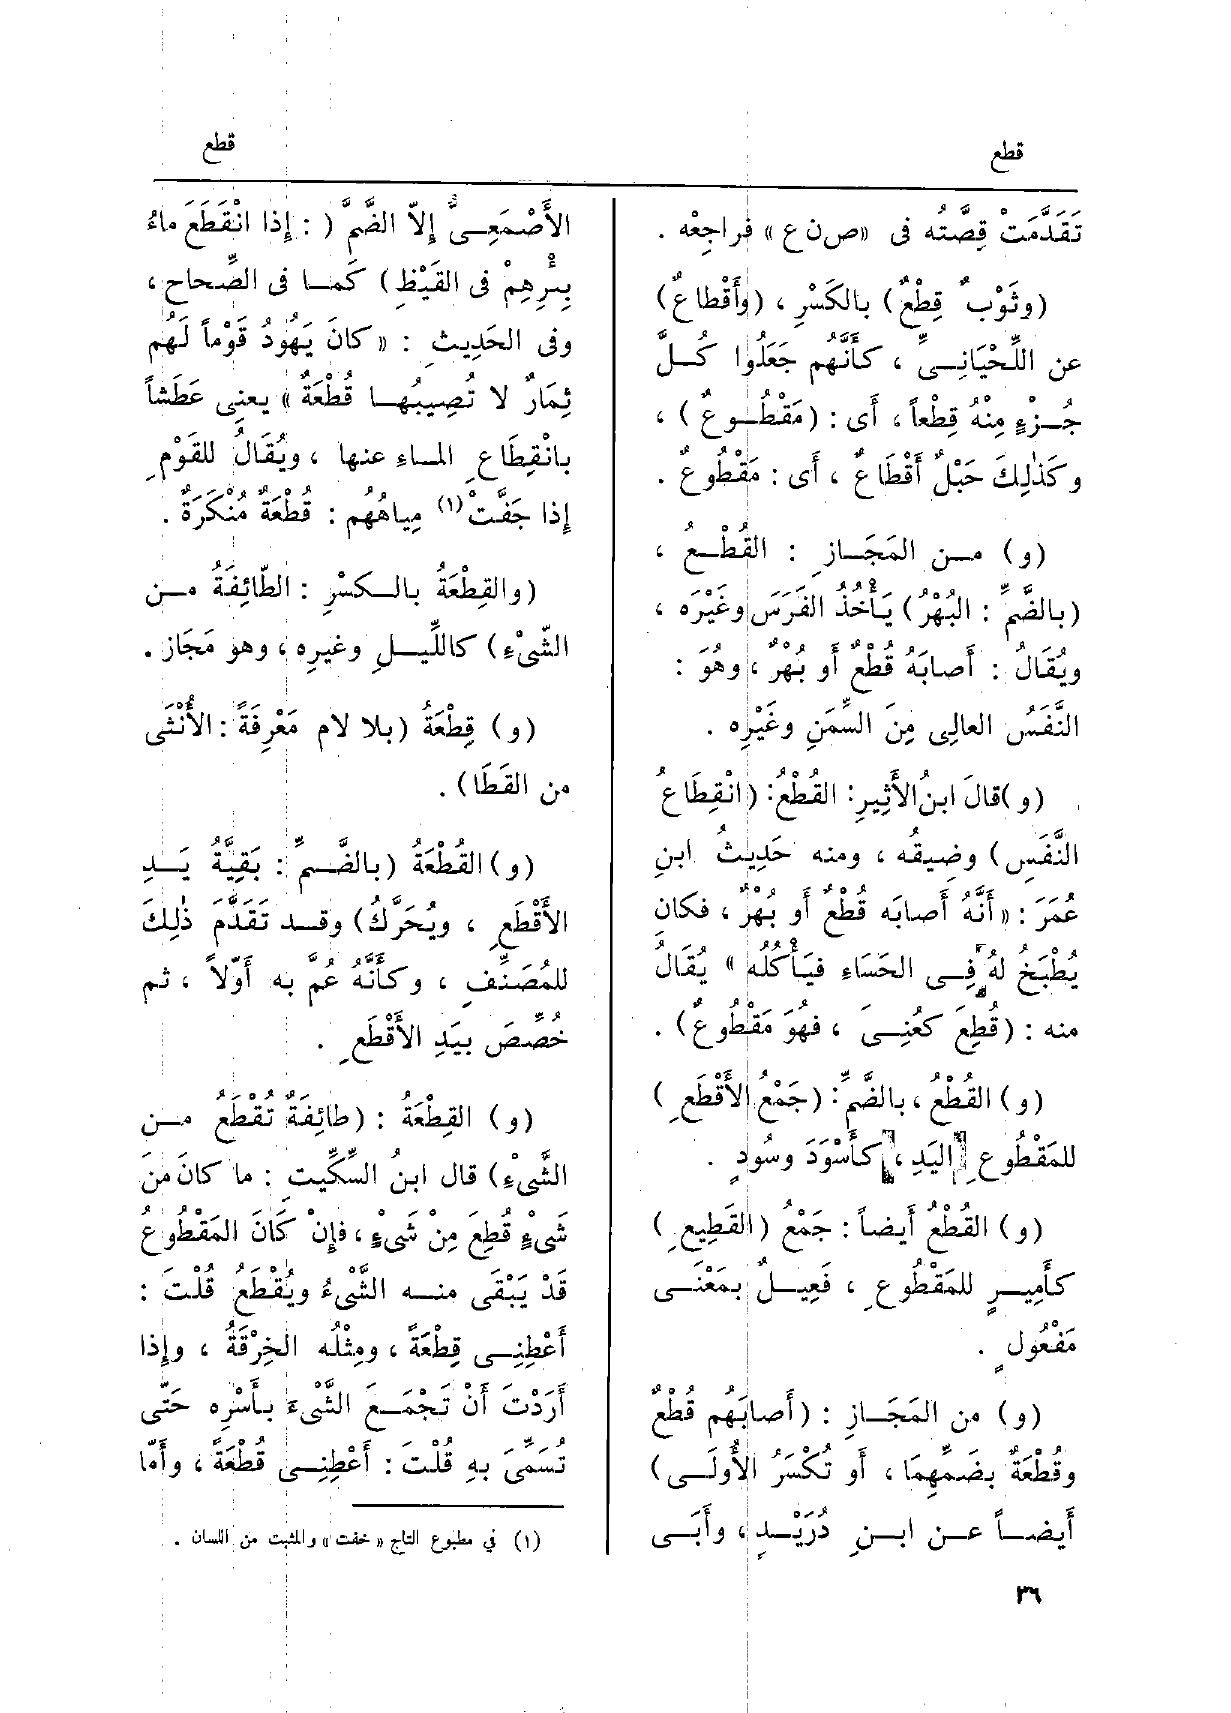 قطع
قطع
تَقَدَّمَتْ قِصَّتُه فى «ص ن ع» فراجِعْه .
(وثَوْبٌ قِطْعٌ) بالكَسْرِ ، (وأَقْطاعٌ)
عن اللِّحْيَانِىِّ ، كأَنَّهم جَعَلُوا كُلَّ
جُزْءٍ مِنْهُ قِطْعاً ، أَى : (مَقْطُوعٌ) ،
وكَذٰلِكَ حَبْلٌ أَقْطَاعٌ ، أَى : مَقْطُوعٌ .
(و) من المَجَازِ : القُطْعُ ،
(بالضَّمِّ : البُهْرُ) يَأْخُذُ الفَرَسَ وغَيْرَه ،
ويُقَالُ : أَصابَهُ قُطْعٌ أَو بُهْرٌ ، وهُوَ :
النَّفَسُ العالِى مِنَ السِّمَنِ وغَيْرِه .
(و)قالَ ابنُ الأَثِيرِ : القُطْعُ : (انْقِطَاعُ
النَّفَسِ) وضِيقُه ، ومنه حَدِيثُ ابنِ
عُمَرَ : «أَنَّهُ أَصابَه قُطْعٌ أَو بُهْرٌ ، فكانَ
يُطْبَخُ لهُ فِى الحَسَاءِ فيَأْكُلُه » يُقَالُ
منه : (قُطِعَ كعُنِىَ ، فهُوَ مَقْطُوعٌ) .
(و) القُطْعُ ، بالضَّمِّ : (جَمْعُ الأَقْطَعِ)
للمَقْطُوعِ اليَدِ ، كأَسْوَدَ وسُودٍ .
(و) القُطْعُ أَيضاً : جَمْعُ (القَطِيعِ)
كأَمِيرٍ للمَقْطُوعِ ، فَعِيلٌ بمَعْنَى
مَفْعُولٍ .
(و) من المَجَازِ : (أَصابَهُم قُطْعٌ
وقُطْعَةٌ بضَمِّهِمَا ، أَو تُكْسَرُ الأُولَى)
أَيضاً عن ابنِ دُرَيْدٍ ، وأَبَى
الأَصْمَعِىُّ إِلاّ الضَّمَّ ( : إِذا انْقَطَعَ ماءُ
بِئْرِهِمْ فى القَيْظِ) كَما فى الصِّحاح ،
وفى الحَدِيثِ : « كانَ يَهُودُ قَوْماً لَهُم
ثِمَارٌ لا تُصِيبُها قُطْعَةٌ » يعنِى عَطَشاً
بانْقِطَاعِ الماءِ عنها ، ويُقَالُ للقَوْمِ
إِذا جَفَّتْ (١) مِياهُهُم : قُطْعَةٌ مُنْكَرَةٌ .
(والقِطْعَةُ بالكسْرِ : الطّائِفَةُ من
الشَّىْءِ) كاللِّيلِ وغيرِه ، وهو مَجَاز .
(و) قِطْعَةُ (بلا لام مَعْرِفَةً : الأُنْثَى
من القَطَا) .
(و) القُطْعَةُ (بالضَّمِّ : بَقِيَّةُ يَدِ
الأَقْطَعِ ، ويُحَرَّكُ) وقد تَقَدَّمَ ذٰلِكَ
للمُصَنِّفِ ، وكأَنَّهُ عُمَّ به أَوّلاً ، ثم
خُصِّصَ بيَدِ الأَقْطَعِ .
(و) القِطْعَةُ : (طائِفَةٌ تُقْطَعُ من
الشَّىْءِ) قال ابنُ السِّكِّيتِ : ما كانَ منَ
شَىْءٍ قُطِعَ مِنْ شَىْءٍ ، فإِنْ كَانَ المَقْطُوعُ
قَدْ يَبْقَى منه الشَّىْءُ ويُقْطَعُ قُلْتَ :
أَعْطِنِى قِطْعَةً ، ومِثْلُه الخِرْقَةُ ، وإِذا
أَرَدْتَ أَنْ تَجْمَعَ الشَّىْءَ بأَسْرِه حَتَّى
تُسَمِّىَ بهِ قُلْتَ : أَعْطِنِى قُطْعَةً ، وأَمّا
(١) في مطبوع التاج « خفت » والمثبت من اللسان .
٣٦